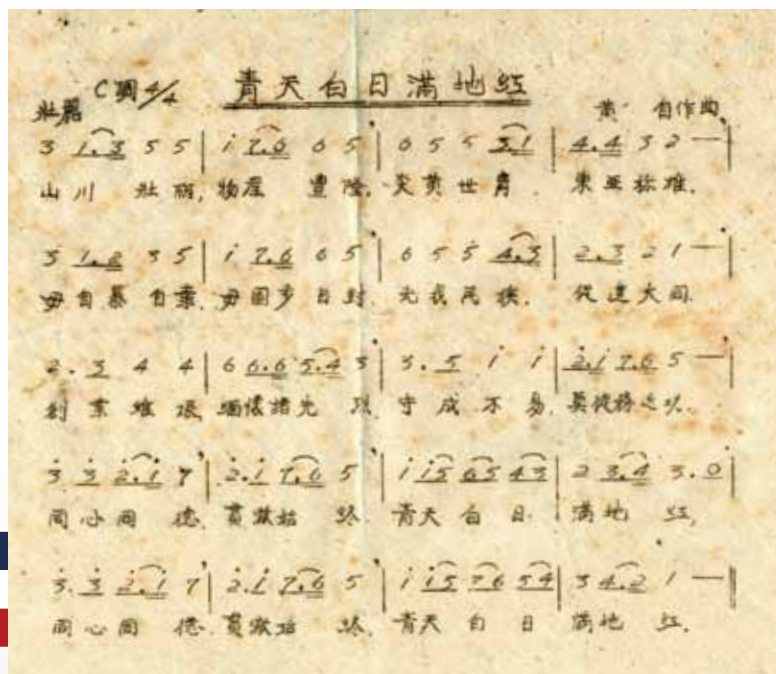 青天白日满地红
C調 4/4
壮麗
黄自作曲
3 1.3 5 5 | i 7.6 6 5 | 6 5 5 3 1 | 4.4 3 2 — |
山川 壮丽, 物产 豊隆, 炎黄世胄, 東亚称雄.
3 1.2 3 5 | i 7.6 6 5 | 6 5 5 4.3 | 2.3 2 1 — |
毋自暴自棄, 毋固步自封, 光我民族, 促進大同.
2. 3 4 4 | 6 6.6 5.4 3 | 3. 5 i i | 2.i 7.6 5 — |
創業维艰, 缅懷諸先烈, 守成不易, 莫徒務近功.
3. 3 2.i 7 | 2.i 7.6 5 | i i5 65 43 | 2 3.4 3.0 |
同心同德, 貫澈始终, 青天白日 满地红,
3. 3 2.i 7 | 2.i 7.6 5 | i i5 76 54 | 3 4.2 1 — ‖
同心同德, 貫澈始终, 青天白日 满地红.